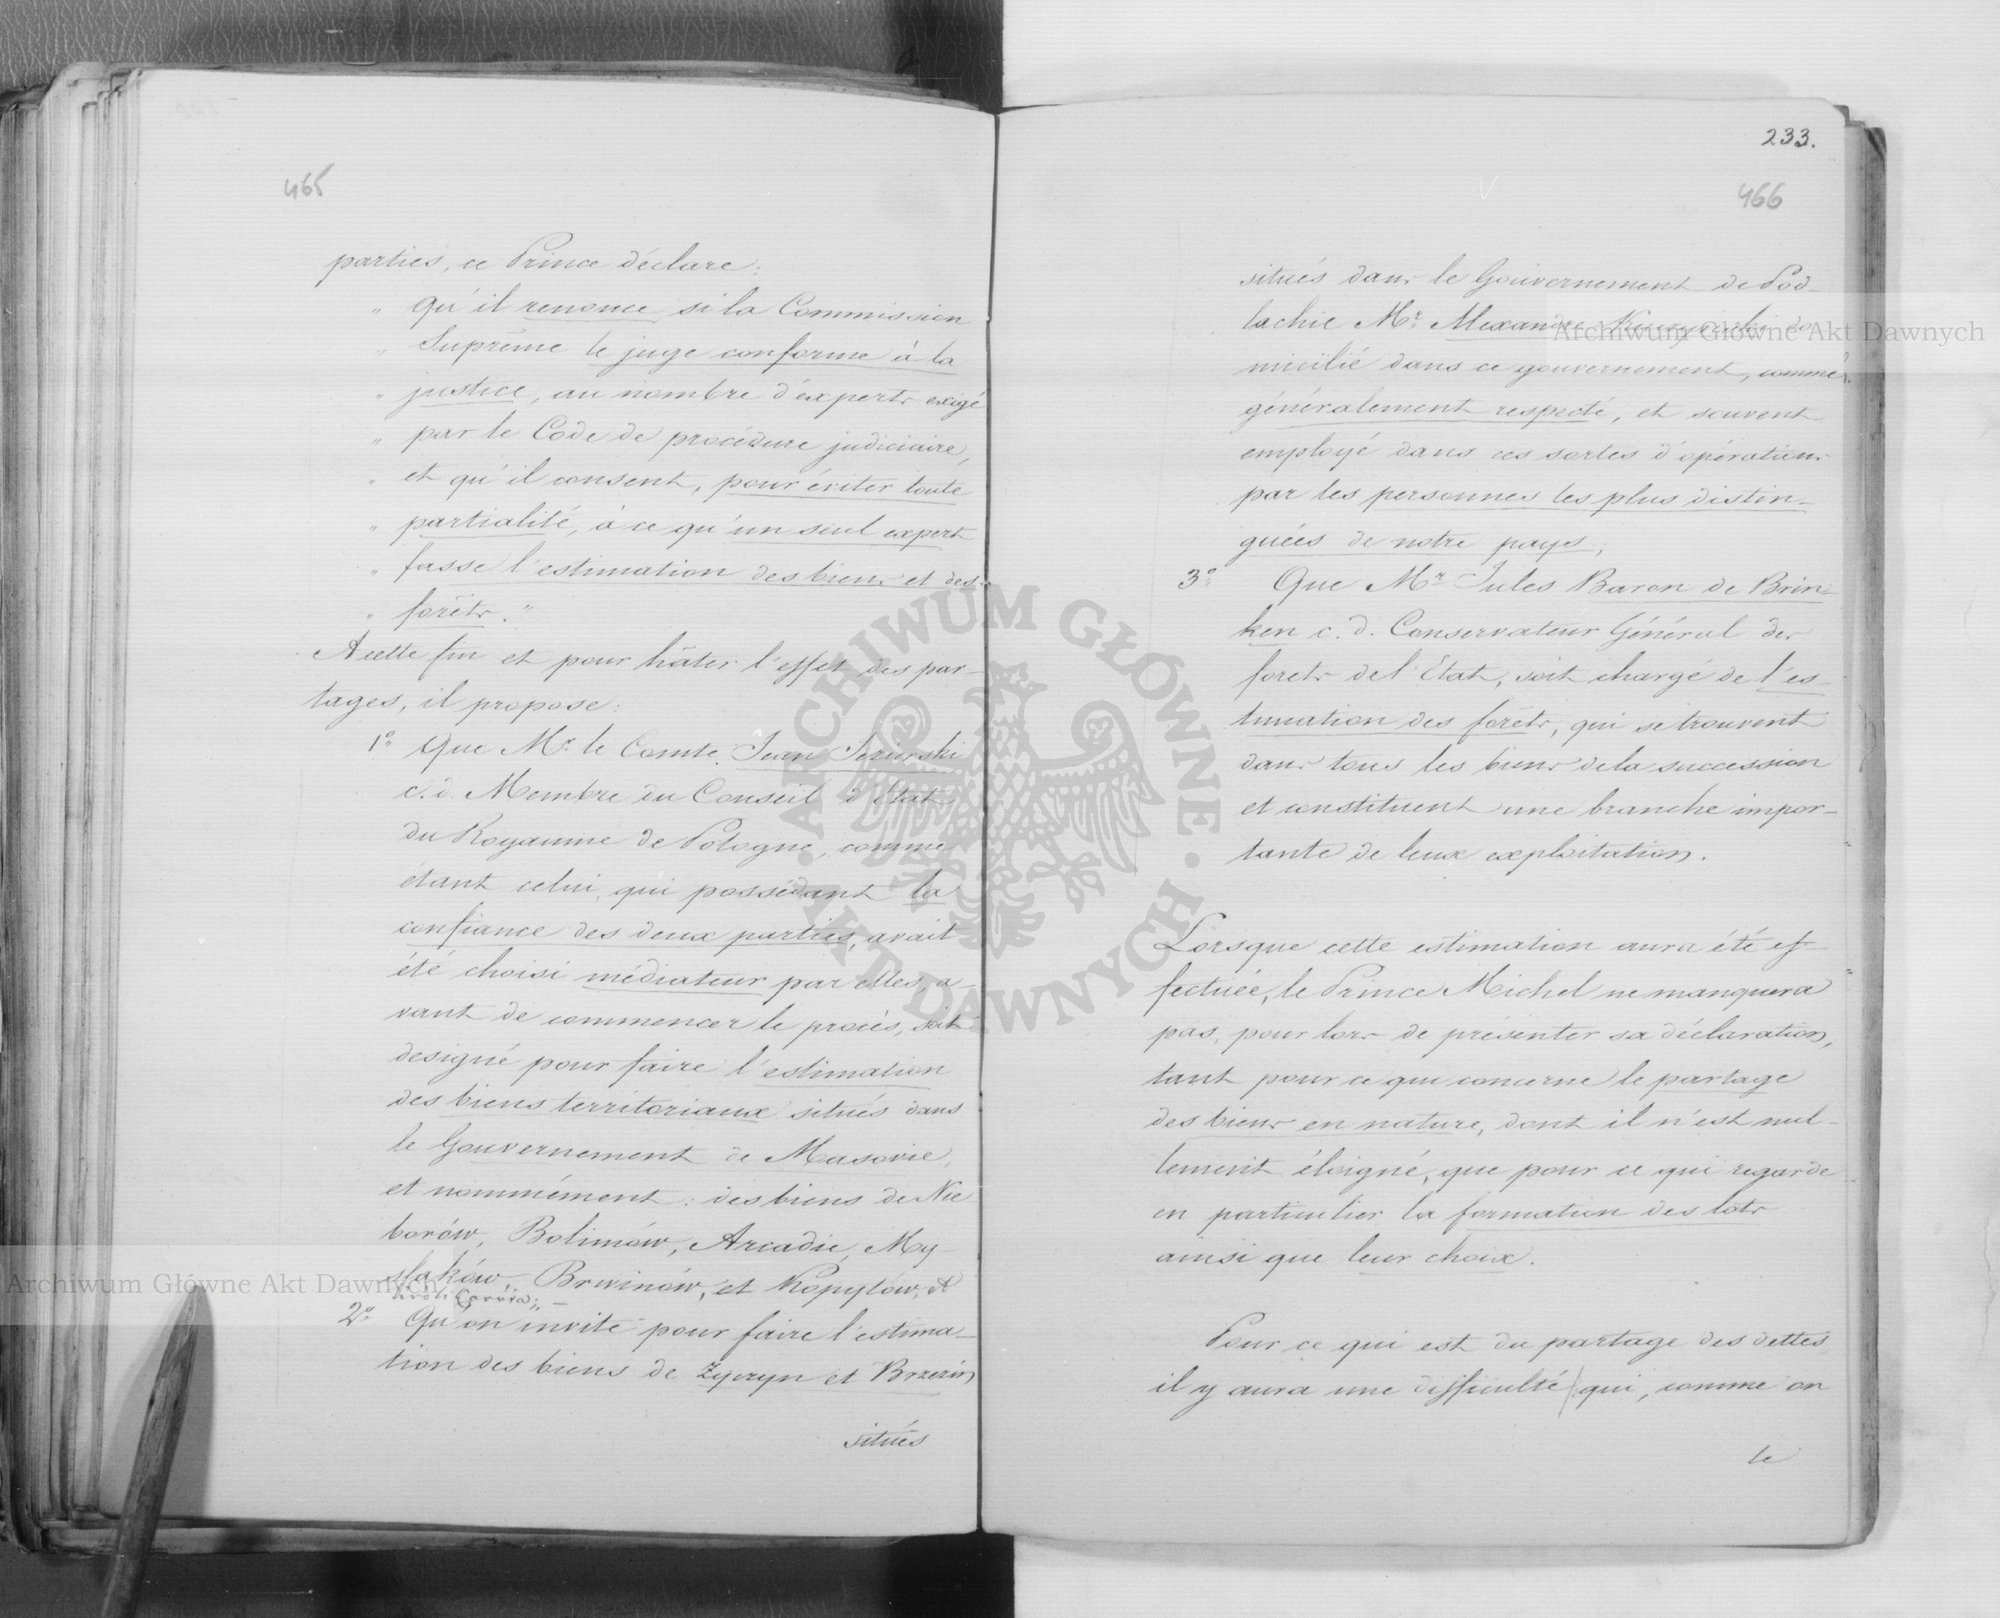 465
parties, ce Prince déclare:
" qu'il renonce si la Commission
" Suprême le juge conforme à la
" justice, au nombre d'experts exigé
" par le Code de procédure judiciaire,
" et qu'il consent, pour éviter toute
" partialité, à ce qu'un seul expert
" fasse l'estimation des biens et des
" forêts."
A cette fin et pour hâter l'effet des par-
tages, il propose:
1º Que Mr. le Comte Jean Jezierski
c. d. Membre du Conseil d'état
du Royaume de Pologne, comme
étant celui, qui possédant la
confiance des deux parties, avait
été choisi médiateur par elles, a-
vant de commencer le procès, soit
designé pour faire l'estimation
des biens territoriaux situés dans
le Gouvernement de Masovie,
et nommément: des biens de Nie
borów, Bolimów, Arcadie, My-
słaków, Brwinów, et Kopytów, et
Królikarnia;, —
2º Qu'on invite pour faire l'estima-
tion des biens de Zyczyn et Brzeziny
situés
233.
466
situés dans le Gouvernement de Pod-
lachie Mr. Alexandre do-
micilié dans ce gouvernement, comme
généralement respecté, et souvent
employé dans ces sortes d'opérations
par les personnes les plus distin-
guées de notre pays;
3º Que Mr. Jules Baron de Brin-
ken c. d. Conservateur Général des
forets de l'Etat, soit chargé de l'es-
timation des forêts, qui se trouvent
dans tous les biens de la succession
et constituent une branche impor-
tante de leur exploitation.
Lorsque cette estimation aura été ef-
fectuée, le Prince Michel ne manquera
pas, pour lors de présenter sa déclaration,
tant pour ce qui concerne le partage
des biens en nature, dont il n'est nul-
lement éloigné, que pour ce qui regarde
en particulier la formation des lots
ainsi que leur choix.
Pour ce qui est du partage des dettes
il y aura une difficulté qui, comme on
le
ARCHIWUM GŁÓWNE AKT DAWNYCH
Archiwum Główne Akt Dawnych
Archiwum Główne Akt Dawnych